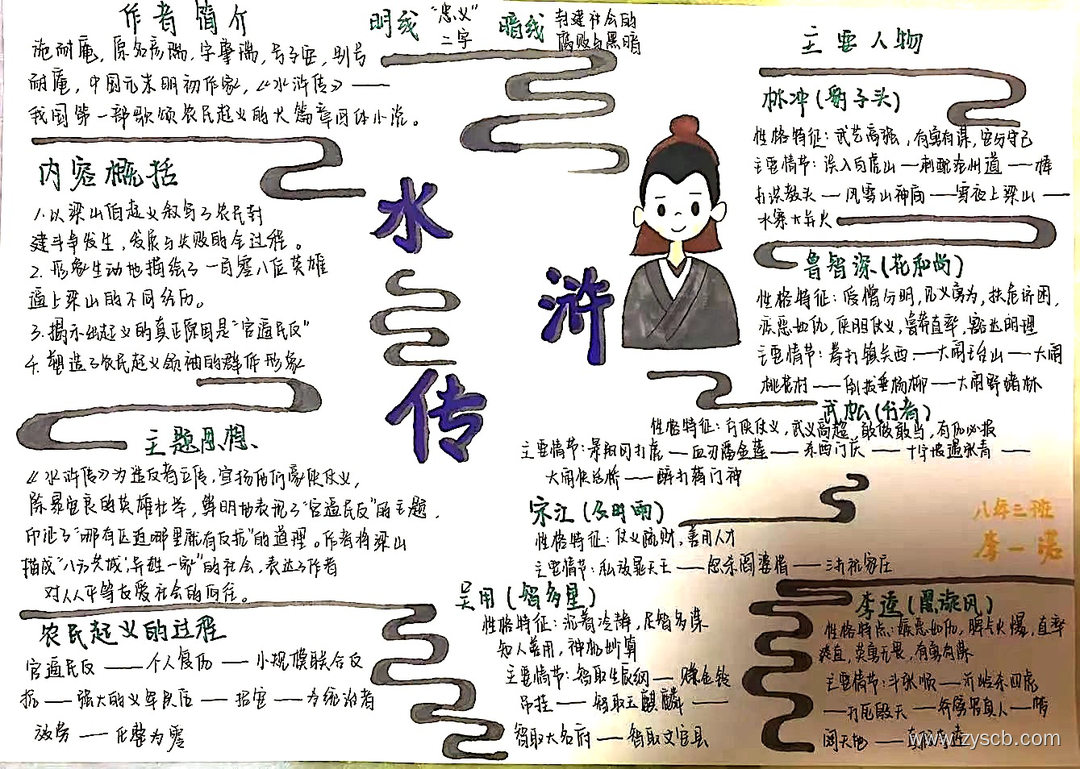 作者简介
施耐庵,原名彦端,字肇瑞,号子安,别号
耐庵,中国元末明初作家,《水浒传》——
我国第一部歌颂农民起义的大篇章回体小说。
明线 "忠义"
二字
暗线 封建社会的
腐败与黑暗
内容概括
1.以梁山伯起义叙写了农民封
建斗争发生,发展与失败的全过程。
2.形象生动地描绘了一百零八位英雄
逼上梁山的不同经历。
3.揭示出起义的真正原因是"官逼民反"
4.塑造了农民起义领袖的群体形象
主题思想
《水浒传》为造反者立传,宣扬他们豪侠仗义,
除暴安良的英雄壮举,鲜明地表现了"官逼民反"的主题,
印证了"哪有压迫哪里就有反抗"的道理。作者将梁山
描成"八方共域,异姓一家"的社会,表达了作者
对人人平等友爱社会的向往。
农民起义的过程
官逼民反——个人复仇——小规模联合反
抗——强大的义军队伍——招安——为统治者
效劳——化整为零
水
浒
传
主要人物
林冲(豹子头)
性格特征:武艺高强,有勇有谋,安分守己
主要情节:误入白虎山—刺配沧州道—棒
打洪教头—风雪山神庙—雪夜上梁山—
水寨大并火
鲁智深(花和尚)
性格特征:爱憎分明,见义勇为,扶危济困,
疾恶如仇,侠胆仗义,鲁莽直率,豁达明理
主要情节:拳打镇关西—大闹五台山—大闹
桃花村—倒拔垂杨柳—大闹野猪林
武松(行者)
性格特征:行侠仗义,武义高超,敢做敢当,有仇必报
主要情节:景阳冈打虎—血刃潘金莲—杀西门庆—十字坡遇张青—
大闹快活林—醉打蒋门神
宋江(及时雨)
性格特征:仗义疏财,善用人才
主要情节:私放晁天王—怒杀阎婆惜—三打祝家庄
吴用(智多星)
性格特征:沉着冷静,足智多谋
知人善用,神机妙算
主要情节:智取生辰纲—赚金铃
吊挂—智取玉麒麟—
智取大名府—智取文安县
八年二班
李一诺
李逵(黑旋风)
性格特点:疾恶如仇,脾气火爆,直率
主要情节:斗张顺—沂岭杀四虎
—打死殷天—斧劈罗真人—
www.zyscb.com